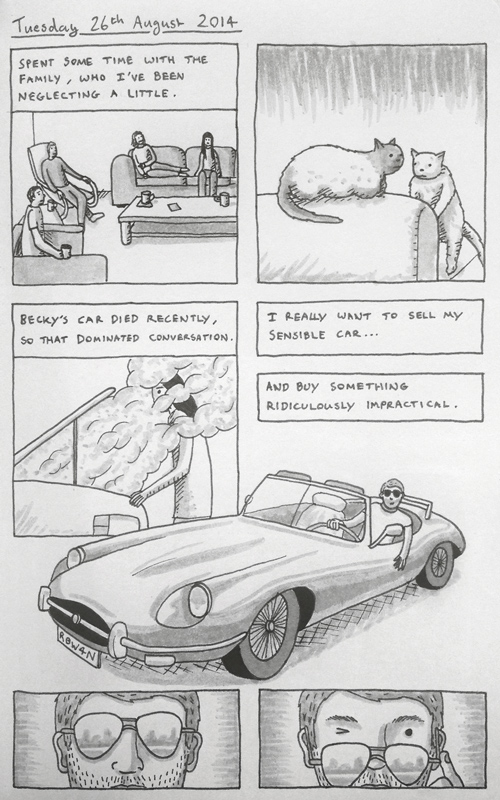 Tuesday 26th August 2014
SPENT SOME TIME WITH THE
FAMILY, WHO I'VE BEEN
NEGLECTING A LITTLE.
BECKY'S CAR DIED RECENTLY,
SO THAT DOMINATED CONVERSATION.
I REALLY WANT TO SELL MY
SENSIBLE CAR...
AND BUY SOMETHING
RIDICULOUSLY IMPRACTICAL.
R0W4N